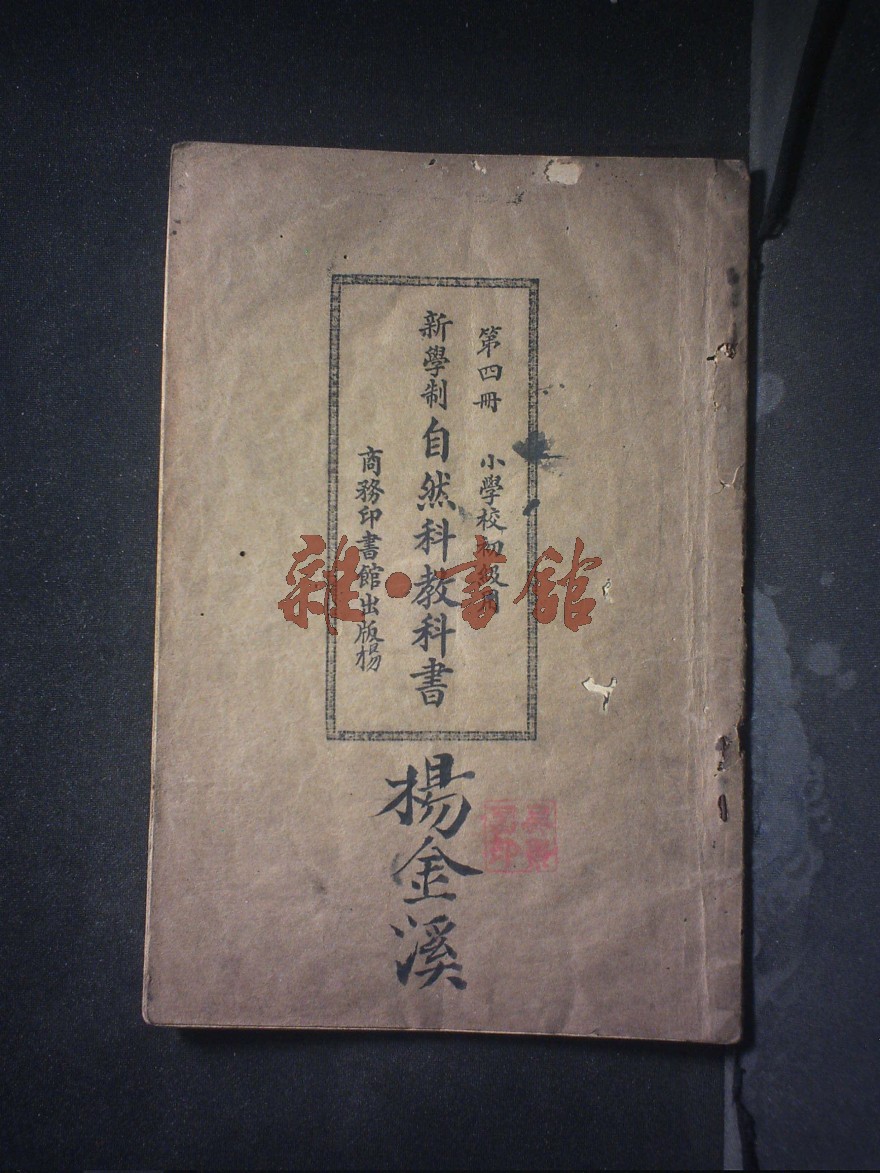 第四冊 小學校初級用
新學制自然科教科書
商務印書館出版楊
楊金溪
雜·書館